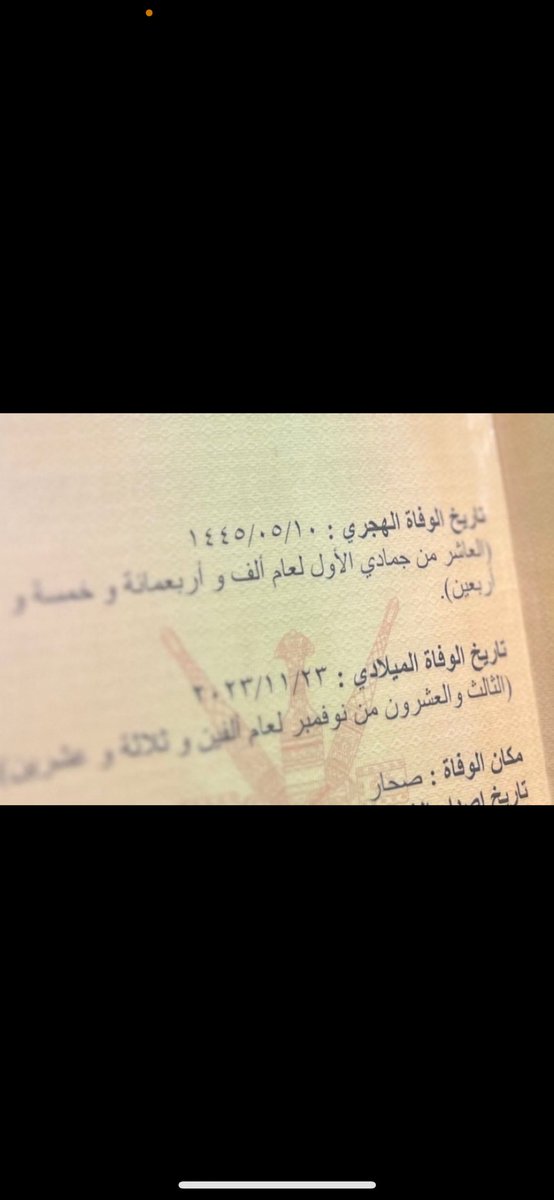 تاريخ الوفاة الهجري : ١٤٤٥/٠٥/١٠
(العاشر من جمادي الأول لعام ألف و أربعمائة و خمسة و
أربعين).
تاريخ الوفاة الميلادي : ٢٠٢٣/١١/٢٣
(الثالث والعشرون من نوفمبر لعام ألفين و ثلاثة و عشرين)
مكان الوفاة : صحار
تاريخ إصدار